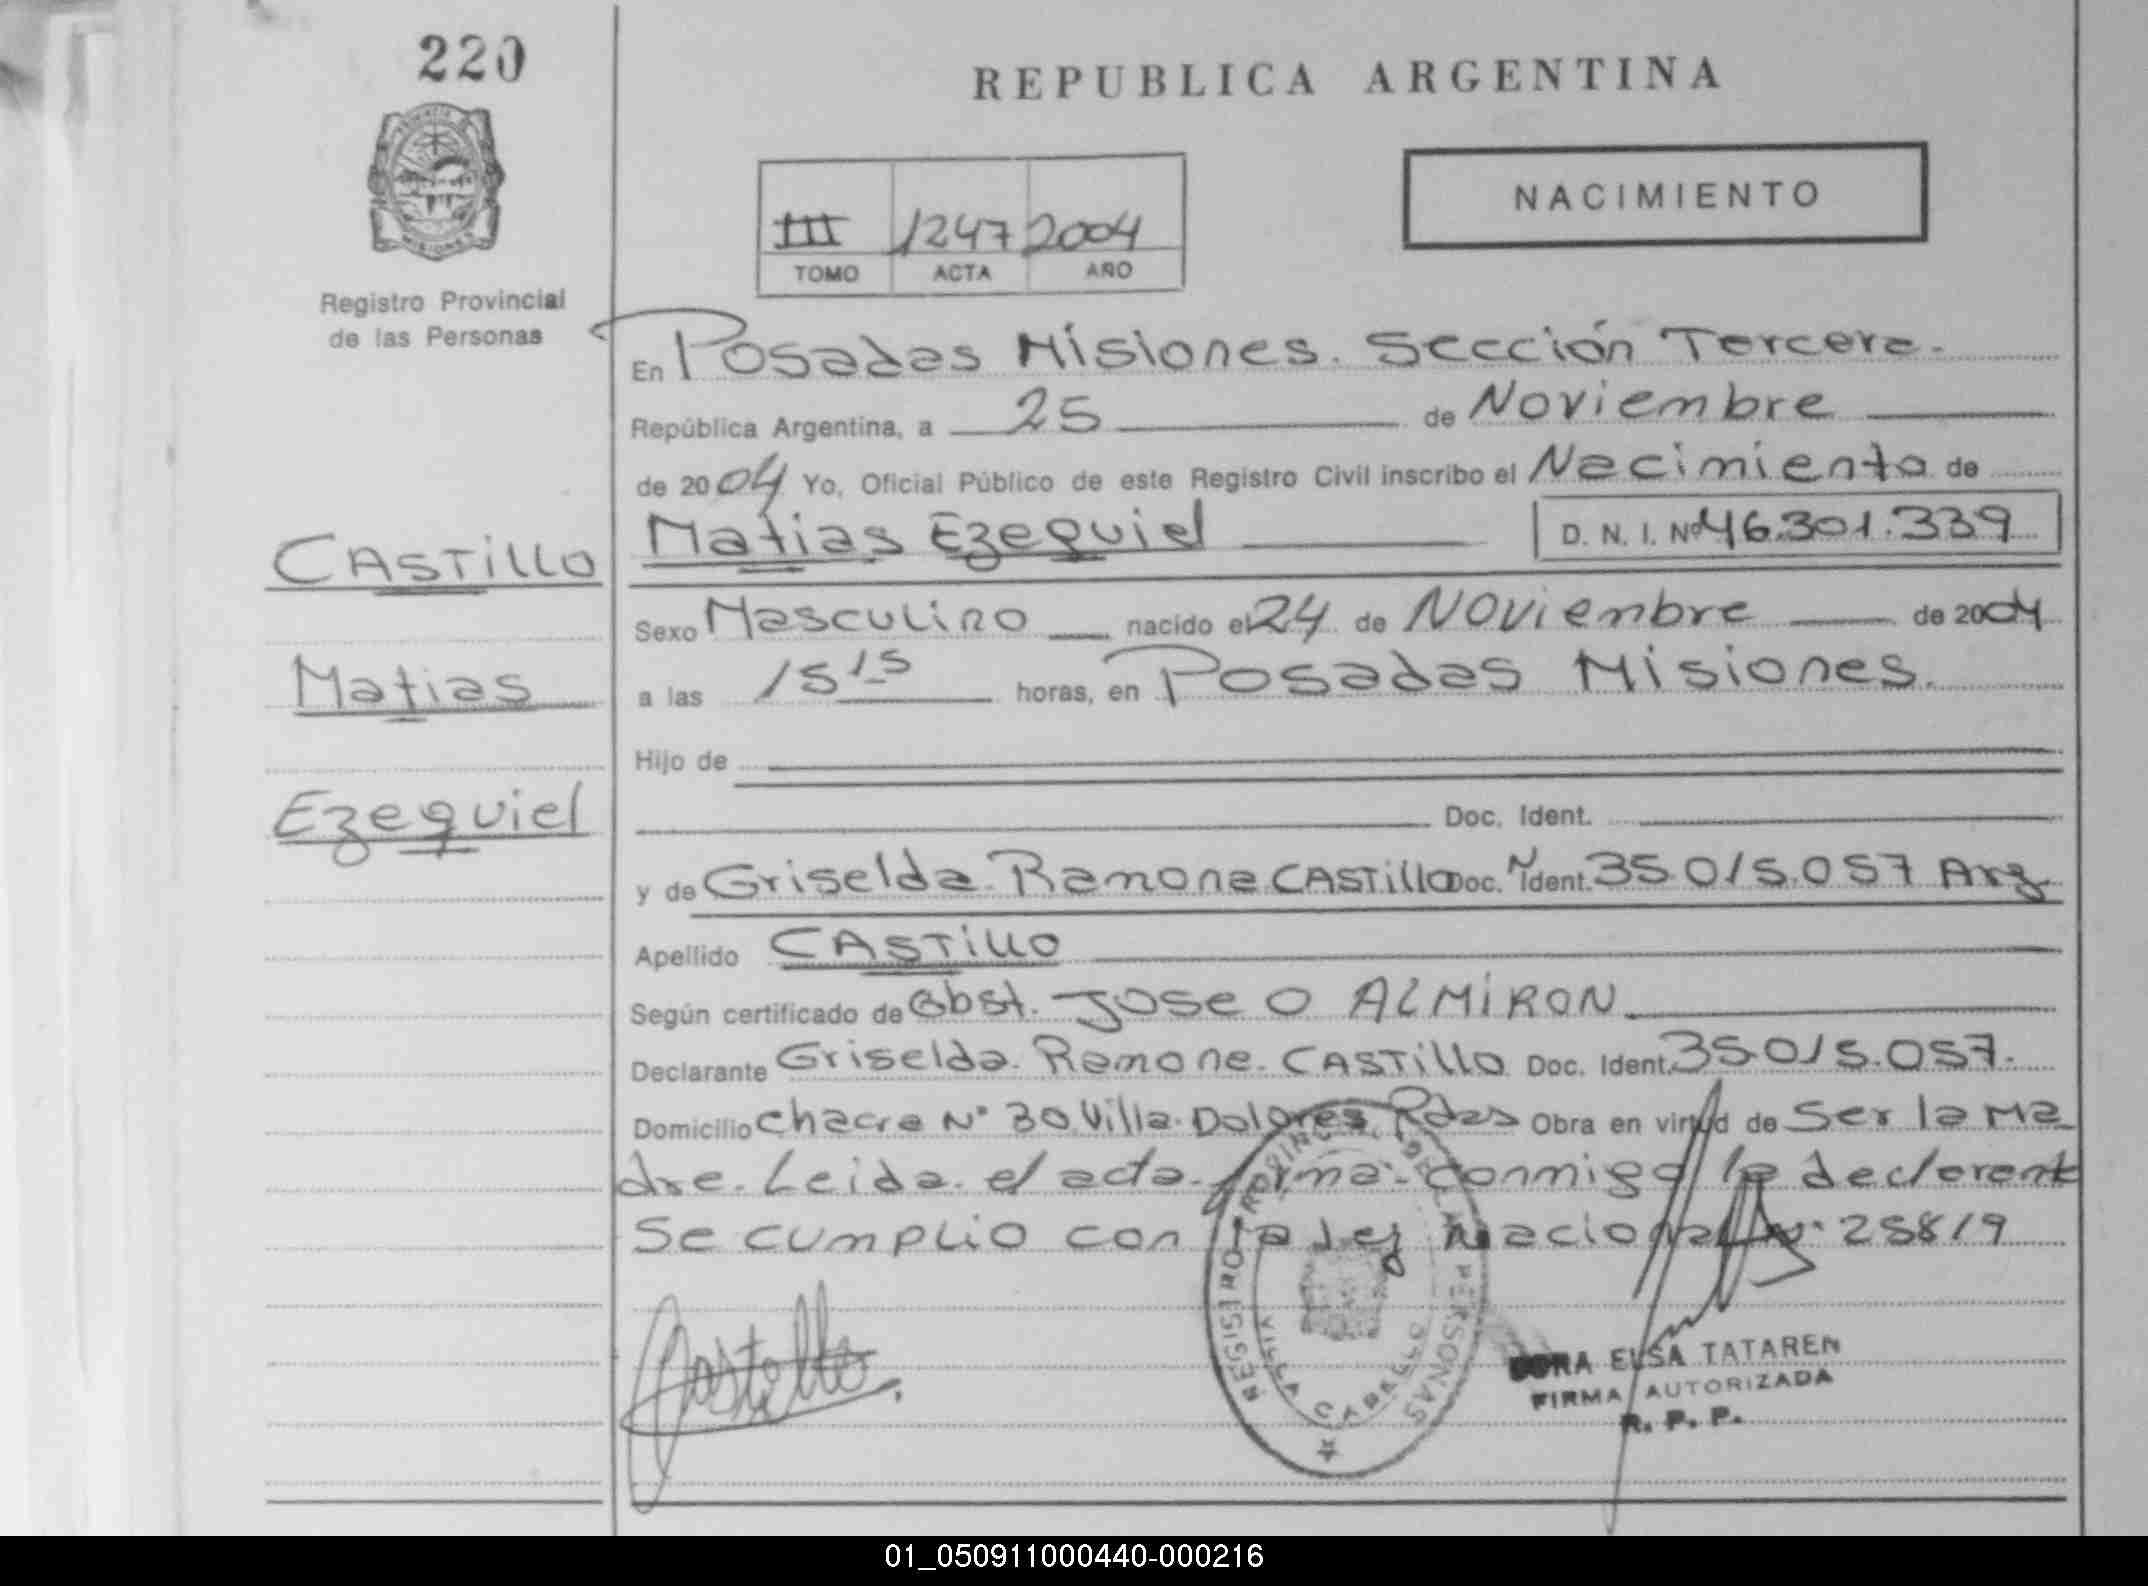 220
REPUBLICA ARGENTINA
NACIMIENTO
III 1247 2004
TOMO ACTA AÑO
PROVINCIA DE
MISIONES
Registro Provincial
de las Personas
En Posadas Misiones. Sección Tercera.
República Argentina, a 25 de Noviembre
de 2004 Yo, Oficial Público de este Registro Civil inscribo el Nacimiento de
Matias Ezequiel D. N. I. Nº 46.301.339
CASTILLO
Sexo Masculino nacido el 24 de Noviembre de 2004
Matias
a las 15 15 horas, en Posadas Misiones.
Hijo de
Ezequiel
Doc. Ident.
y de Griselda Ramona CASTILLO Doc. Ident. N 35.015.057 Arg
Apellido CASTILLO
Según certificado de Obst. Jose O ALMIRON
Declarante Griselda Ramona CASTILLO Doc. Ident. 35.015.057.
Domicilio Chacra Nº 30 Villa Dolores Pdas Obra en virtud de Ser la Ma
dre. Leida el acta firma conmigo la declarant
Se cumplio con la Ley Nacional Nº 25819
Castillo
REGISTRO PROVINCIAL DE LAS PERSONAS
VILLA CABELLO
DORA ELSA TATAREN
FIRMA AUTORIZADA
R. P. P.
01_050911000440-000216